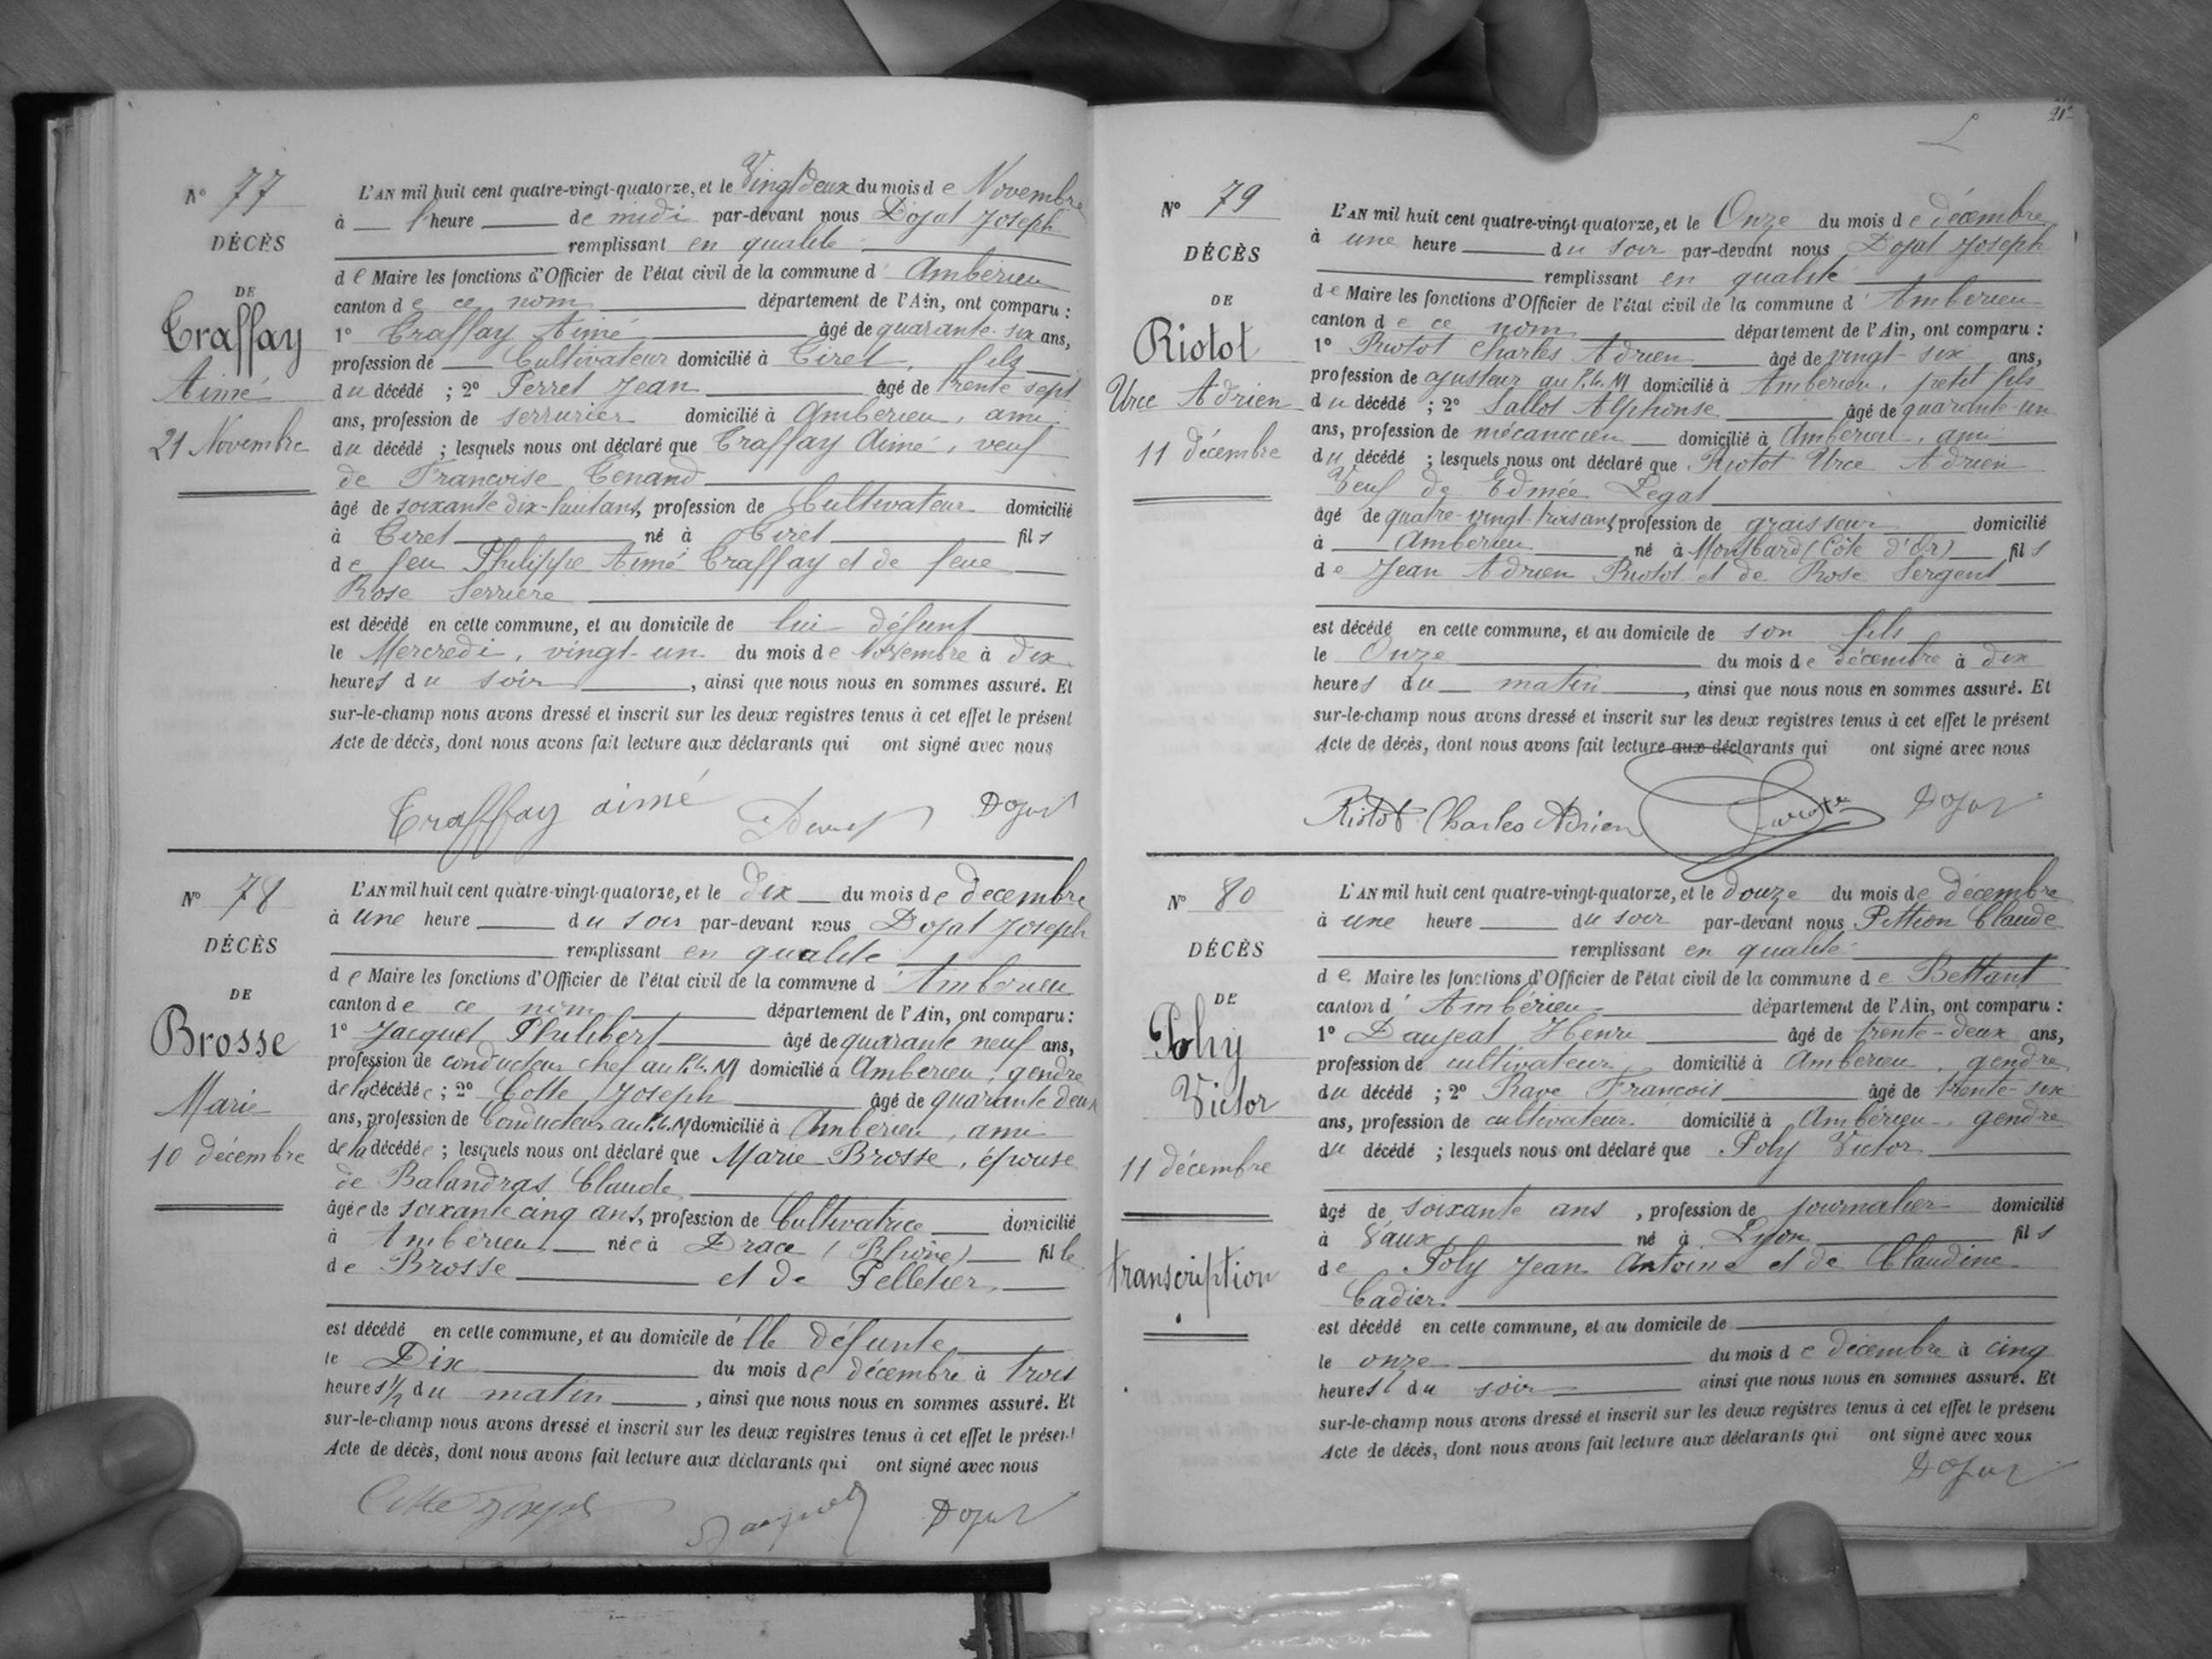 N° 77
DÉCÈS
DE
Traffay
Aimé
21 Novembre
L'AN mil huit cent quatre-vingt-quatorze, et le Vingt deux du mois de Novembre
à 1 heure de midi par-devant nous Dojat Joseph
remplissant en qualité
de Maire les fonctions d'Officier de l'état civil de la commune d' Ambérieu
canton de ce nom département de l'Ain, ont comparu :
1° Traffay Aimé âgé de quarante-six ans,
profession de Cultivateur domicilié à Tiret, fils
du décédé ; 2° Perret Jean âgé de trente sept
ans, profession de serrurier domicilié à Ambérieu, ami
du décédé ; lesquels nous ont déclaré que Traffay Aimé, veuf
de Françoise Tenand
âgé de soixante dix-huit ans, profession de Cultivateur domicilié
à Tiret né à Tiret fils
de feu Philippe Aimé Traffay et de feue
Rose Serrière
est décédé en cette commune, et au domicile de lui défunt
le Mercredi, vingt-un du mois de Novembre à dix
heures du soir, ainsi que nous nous en sommes assuré. Et
sur-le-champ nous avons dressé et inscrit sur les deux registres tenus à cet effet le présent
Acte de décès, dont nous avons fait lecture aux déclarants qui ont signé avec nous
Traffay aimé Dojat
N° 78
DÉCÈS
DE
Brosse
Marie
10 décembre
L'AN mil huit cent quatre-vingt-quatorze, et le dix du mois de decembre
à une heure du soir par-devant nous Dojat Joseph
remplissant en qualité
de Maire les fonctions d'Officier de l'état civil de la commune d' Ambérieu
canton de ce nom département de l'Ain, ont comparu :
1° Jacquet Philibert âgé de quarante neuf ans,
profession de conducteur chef au P.L.M domicilié à Ambérieu, gendre
de la décédée ; 2° Cotte Joseph âgé de quarante deux
ans, profession de Conducteur au P.L.M domicilié à Ambérieu, ami
de la décédée ; lesquels nous ont déclaré que Marie Brosse, épouse
de Balandras Claude
âgée de soixante cinq ans, profession de Cultivatrice domicilié
à Ambérieu née à Dracé (Rhône) fille
de Brosse et de Pelletier
est décédé en cette commune, et au domicile de lle défunte
le Dix du mois de décembre à trois
heures 1/2 du matin, ainsi que nous nous en sommes assuré. Et
sur-le-champ nous avons dressé et inscrit sur les deux registres tenus à cet effet le présent
Acte de décès, dont nous avons fait lecture aux déclarants qui ont signé avec nous
Cotte Joseph Jacquet Dojat
N° 79
DÉCÈS
DE
Riotot
Urce Adrien
11 décembre
L'AN mil huit cent quatre-vingt-quatorze, et le Onze du mois de décembre
à une heure du soir par-devant nous Dojat Joseph
remplissant en qualité
de Maire les fonctions d'Officier de l'état civil de la commune d' Ambérieu
canton de ce nom département de l'Ain, ont comparu :
1° Riotot Charles Adrien âgé de vingt-six ans,
profession de ajusteur au P.L.M domicilié à Ambérieu, petit fils
du décédé ; 2° Sallot Alphonse âgé de quarante-un
ans, profession de mécanicien domicilié à Ambérieu, ami
du décédé ; lesquels nous ont déclaré que Riotot Urce Adrien
Veuf de Edmée Legat
âgé de quatre-vingt-trois ans, profession de graisseur domicilié
à Ambérieu né à Montbard (Côte d'Or) fils
de Jean Adrien Riotot et de Rose Sergent
est décédé en cette commune, et au domicile de son fils
le Onze du mois de décembre à dix
heures du matin, ainsi que nous nous en sommes assuré. Et
sur-le-champ nous avons dressé et inscrit sur les deux registres tenus à cet effet le présent
Acte de décès, dont nous avons fait lecture aux déclarants qui ont signé avec nous
Riotot Charles Adrien Dojat
N° 80
DÉCÈS
DE
Poly
Victor
11 décembre
transcription
L'AN mil huit cent quatre-vingt-quatorze, et le douze du mois de décembre
à une heure du soir par-devant nous Pittion Claude
remplissant en qualité
de Maire les fonctions d'Officier de l'état civil de la commune de Bettant
canton d' Ambérieu département de l'Ain, ont comparu :
1° Daujeat Henri âgé de trente-deux ans,
profession de cultivateur domicilié à Ambérieu, gendre
du décédé ; 2° Rave François âgé de trente-six
ans, profession de cultivateur domicilié à Ambérieu, gendre
du décédé ; lesquels nous ont déclaré que Poly Victor
âgé de soixante ans, profession de journalier domicilié
à Vaux né à Lyon fils
de Poly Jean Antoine et de Claudine
Cadier.
est décédé en cette commune, et au domicile de
le onze du mois de décembre à cinq
heures du soir ainsi que nous nous en sommes assuré. Et
sur-le-champ nous avons dressé et inscrit sur les deux registres tenus à cet effet le présent
Acte de décès, dont nous avons fait lecture aux déclarants qui ont signé avec nous
Dojat